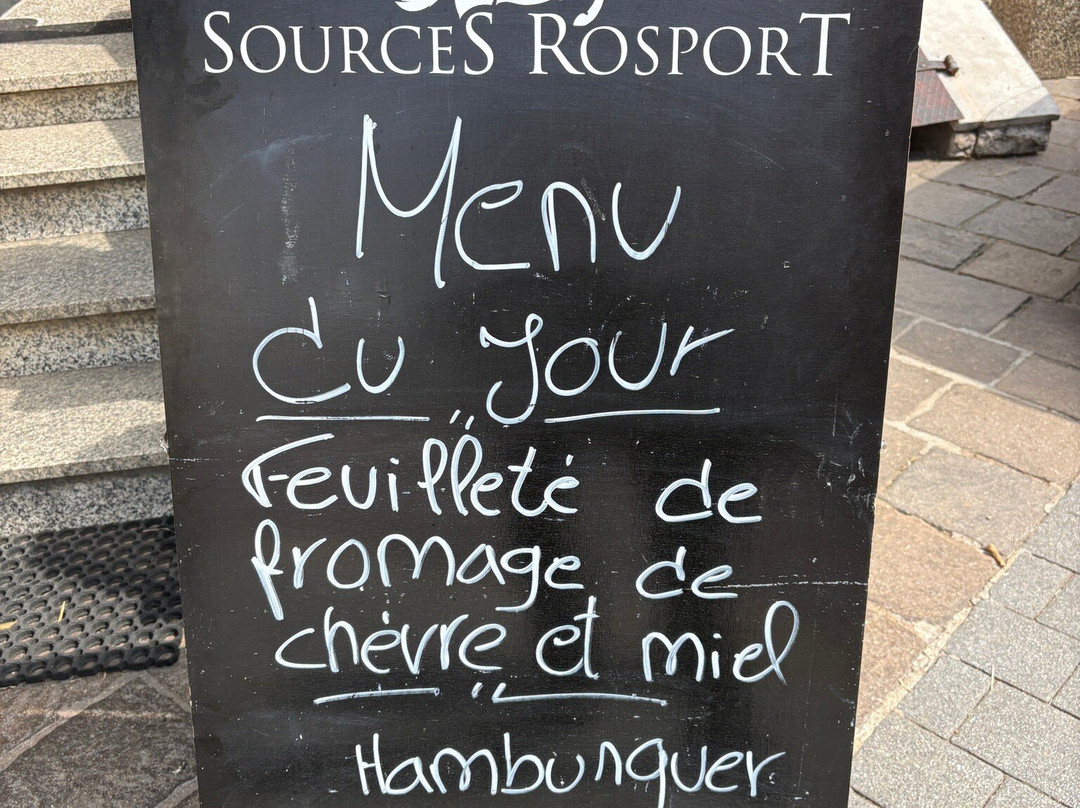 SOURCES ROSPORT
Menu
du Jour
Feuilleté de
fromage de
chèvre et miel
Hambunguer